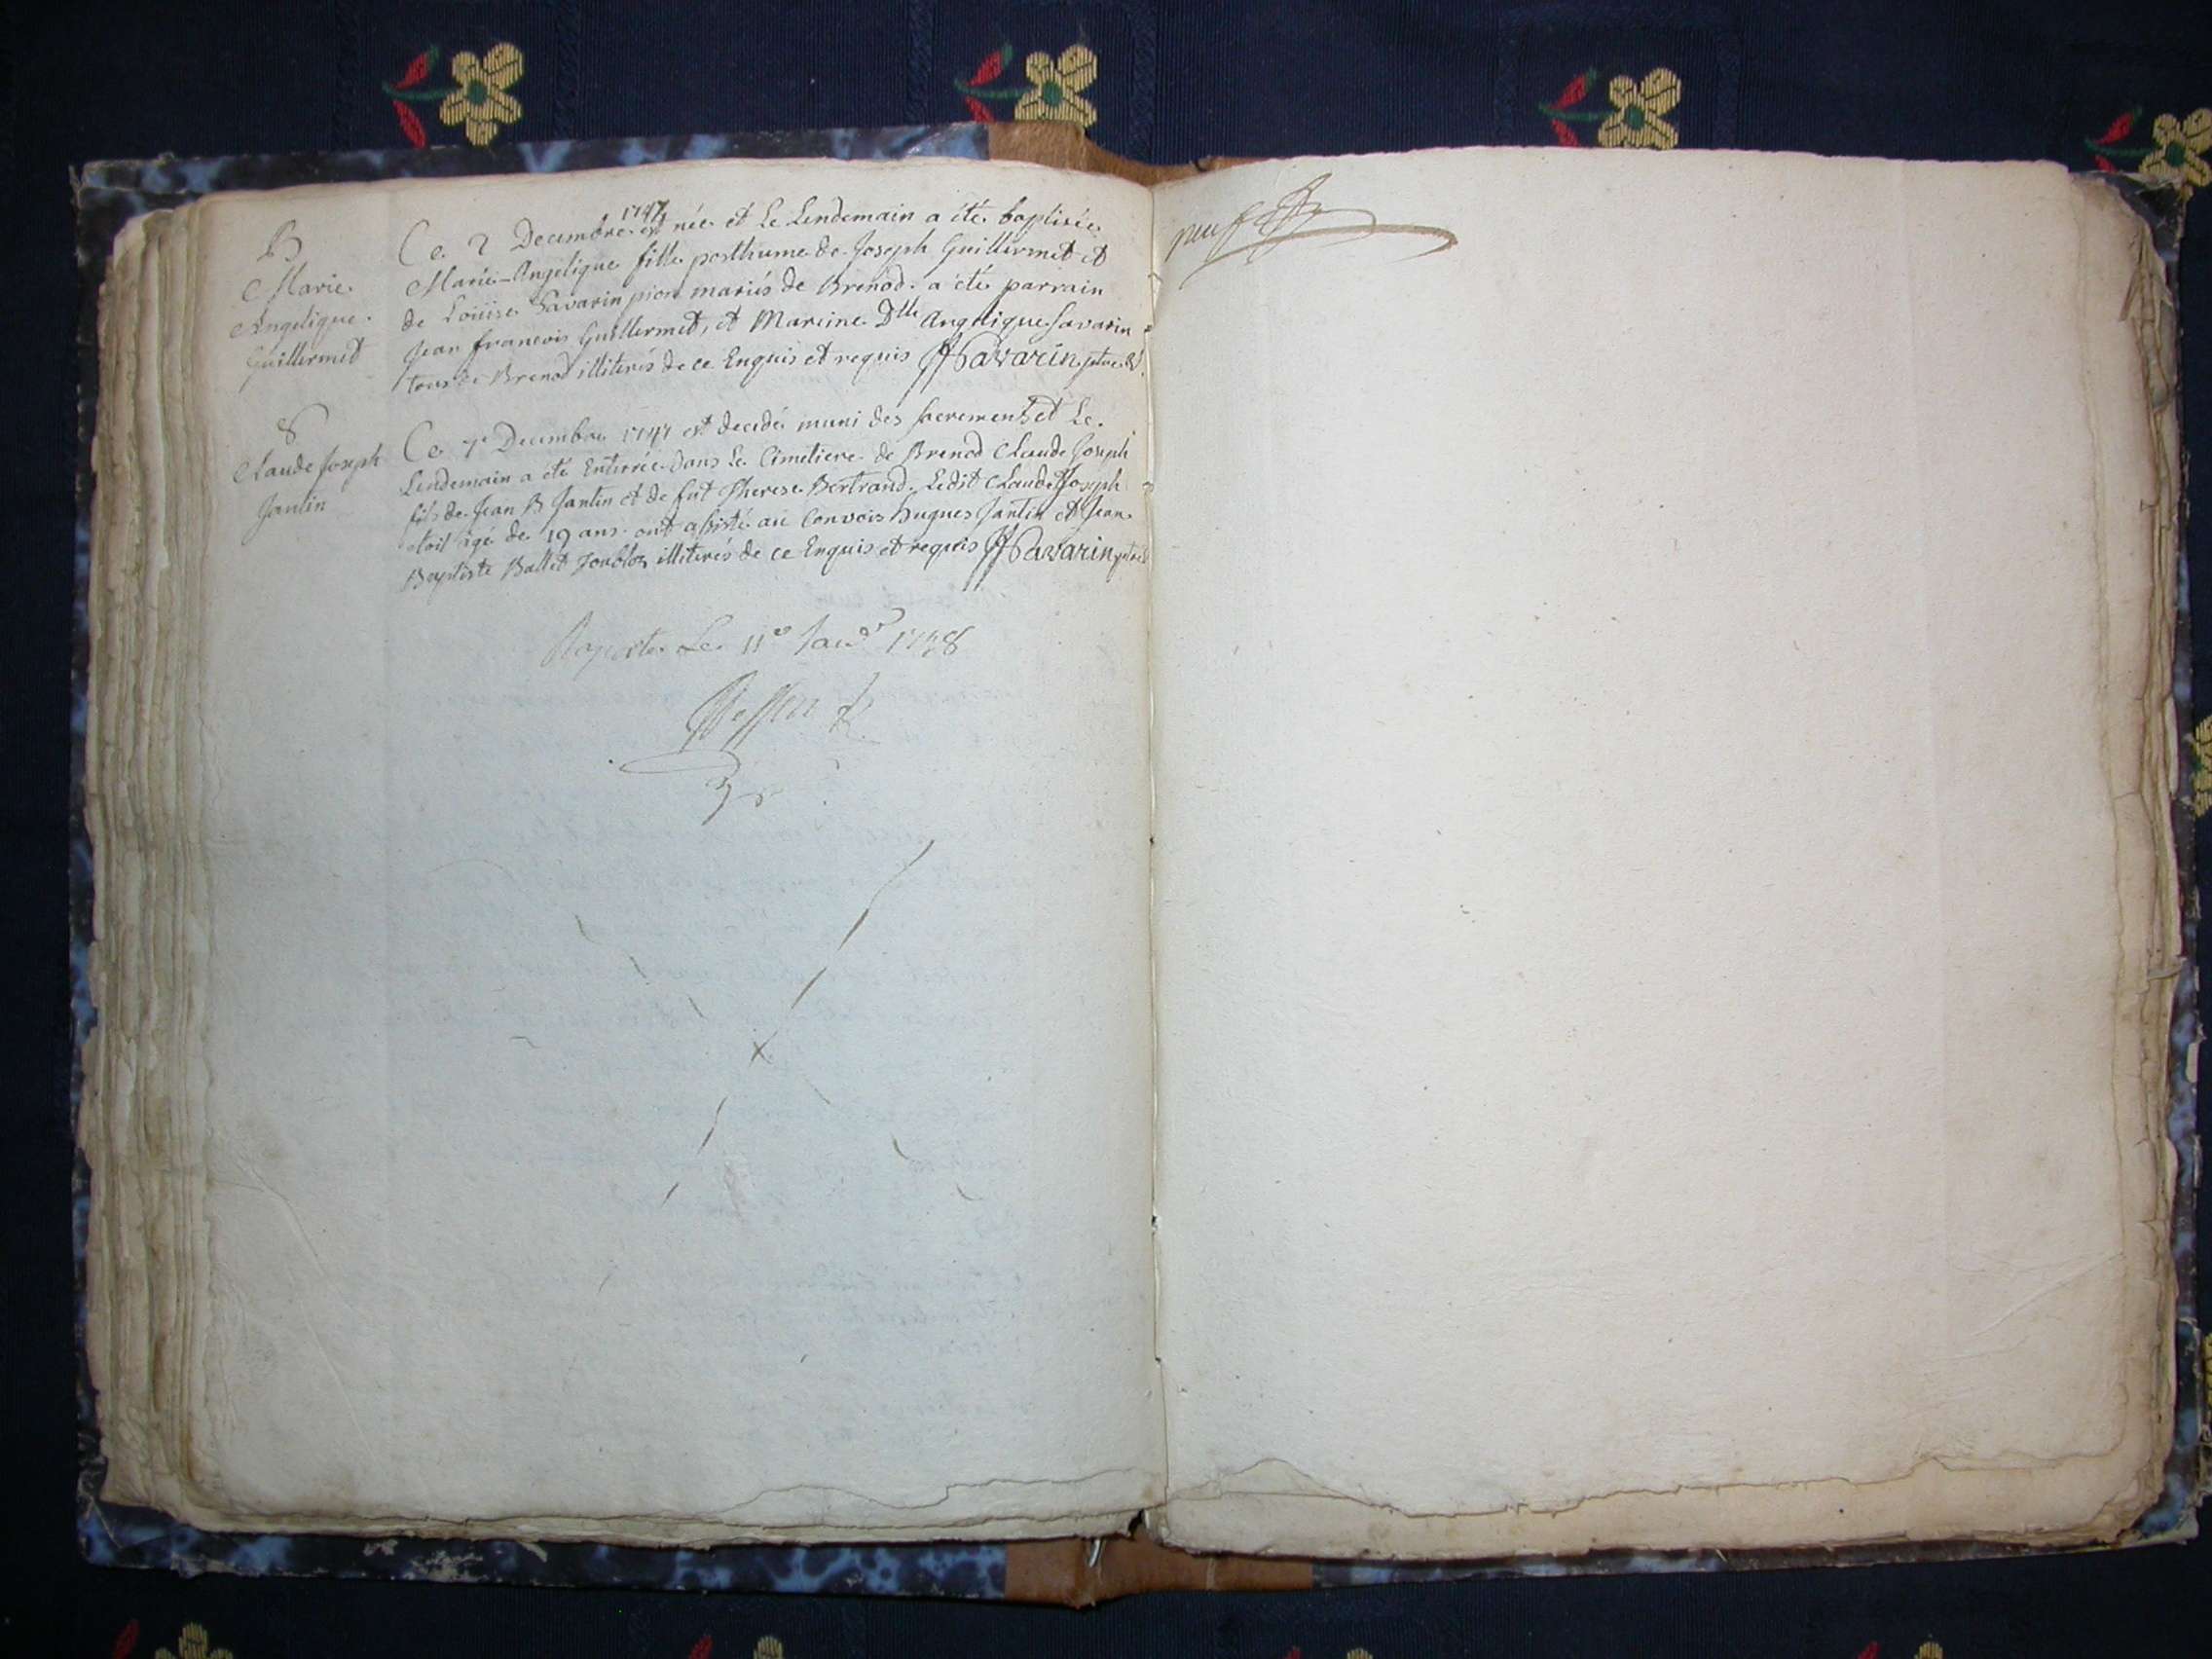 B
Marie
Angelique
Guillermet
Ce 2 Decembre 1747 est née et Le Lendemain a été baptisée
Marie-Angelique fille posthume de Joseph Guillermet et
de Loüise Savarin pion mariés de Brenod. a été parrain
Jean francois Guillermet, et Mareine Dlle Angelique Savarin
tous de Brenod illiterés de ce Enquis et requis Savarin ptre
S
Claude Joseph
Jantin
Ce 7e Decembre 1747 est decedé muni des sacremens et Le
Lendemain a été Enterrée dans Le Cimetiere de Brenod Claude Joseph
fils de Jean B Jantin et de fut Therese Bertrand. Ledit Claude Joseph
etoit agé de 19 ans. ont assisté au Convois hugues Jantin et Jean
Baptiste Ballet illiterés de ce Enquis et requis Savarin ptre
Raporté Le 11e Janvr 1748